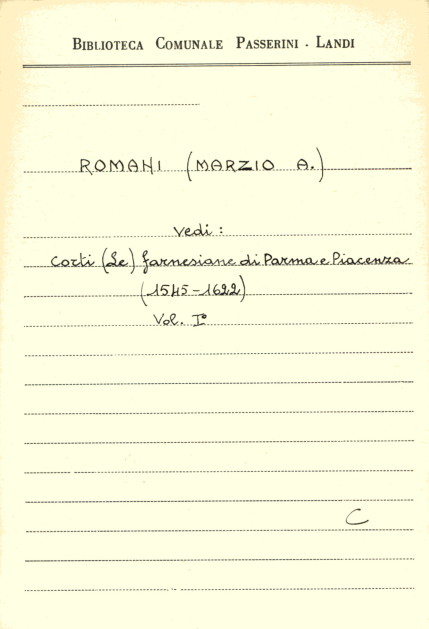 BIBLIOTECA COMUNALE PASSERINI - LANDI
ROMANI (MARZIO A.)
Vedi:
Corti (Le) farnesiane di Parma e Piacenza
(1545-1622)
Vol. I°
C